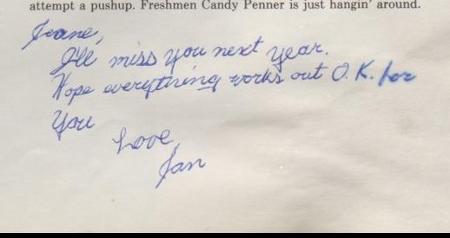 attempt a pushup. Freshmen Candy Penner is just hangin' around.
Jeane,
I'll miss you next year.
Hope everything works out O.K. for
You
Love,
Jan